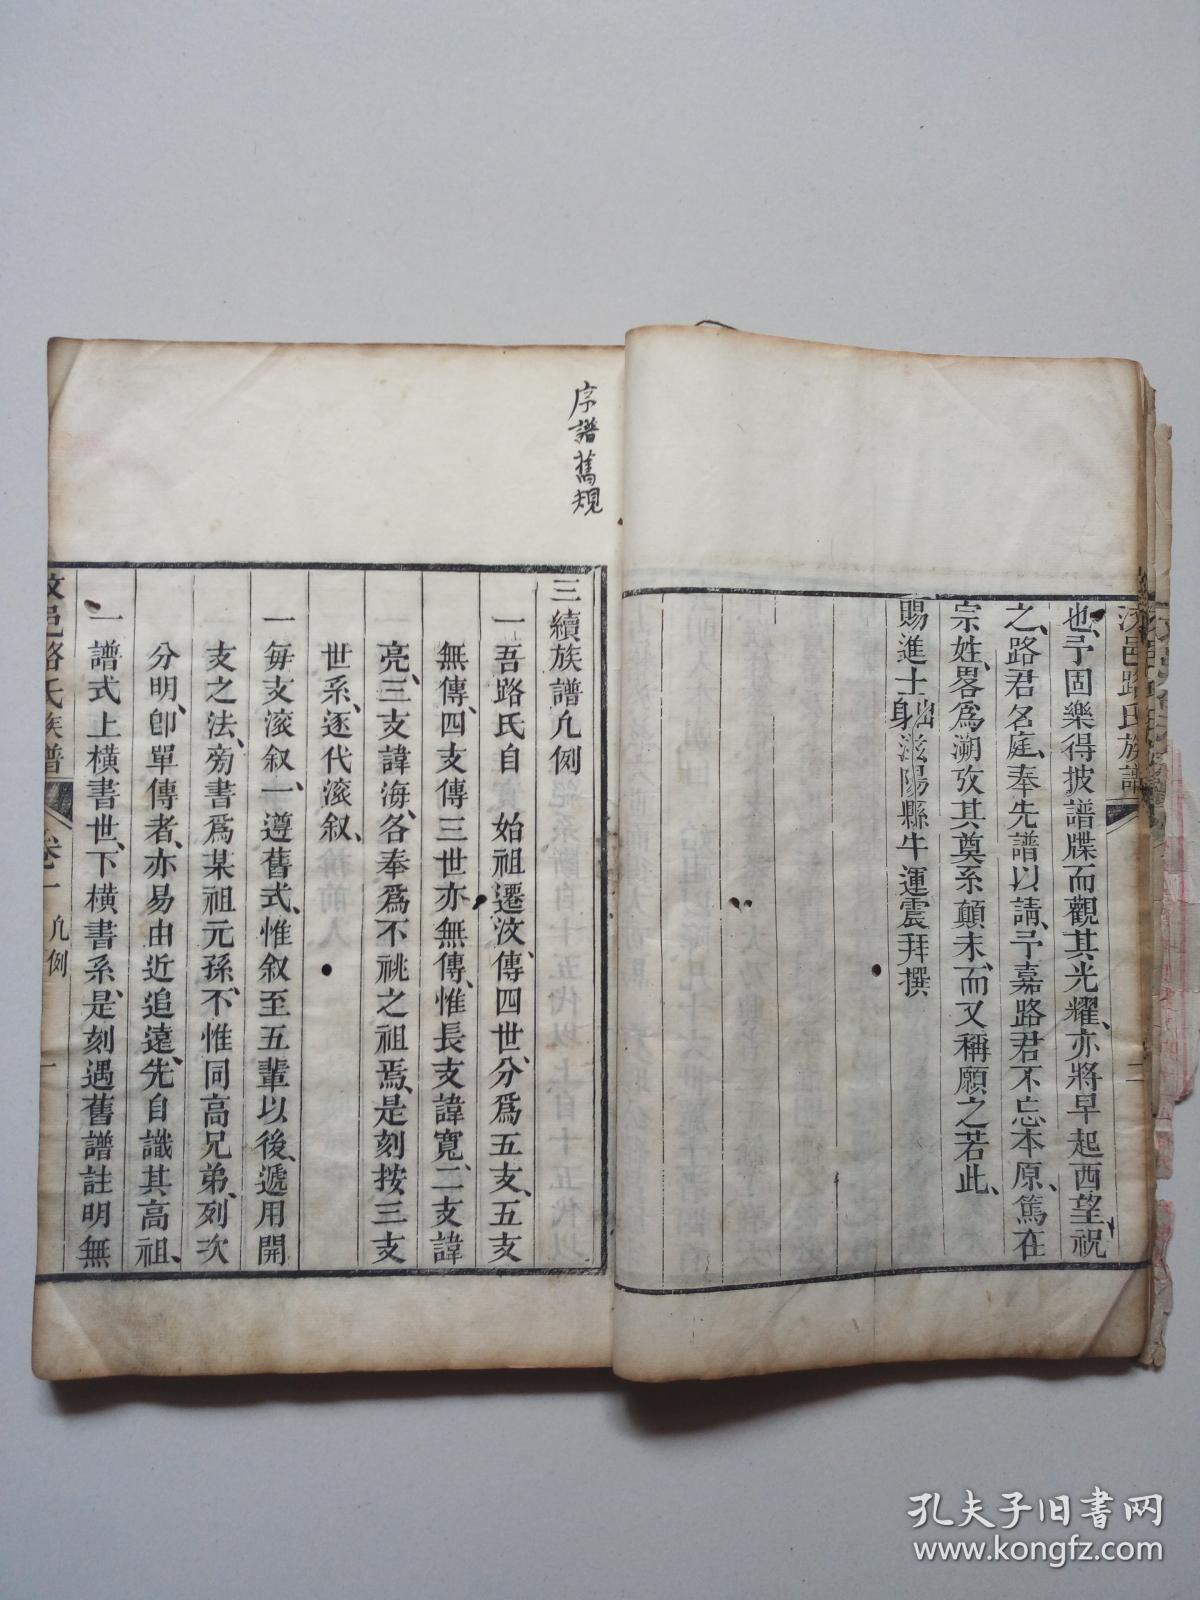 汶邑路氏族譜
二
也、予固樂得披譜牒而觀其光耀、亦將早起西望祝
之、路君名庭、奉先譜以請、予嘉路君不忘本原、篤在
宗姓、畧爲溯攷其奠系顛末、而又稱願之若此、
賜進士出身滋陽縣牛運震拜撰
序譜舊規
三續族譜凡例
一吾路氏自 始祖遷汶、傳四世、分爲五支、五支
無傳、四支傳三世亦無傳、惟長支諱寬、二支諱
亮、三支諱海、各奉爲不祧之祖焉、是刻按三支
世系、逐代滚叙、
一每支滚叙、一遵舊式、惟叙至五輩以後、遞用開
支之法、旁書爲某祖元孫、不惟同高兄弟、列次
分明、卽單傳者、亦易由近追遠、先自識其高祖、
一譜式上橫書世、下橫書系、是刻遇舊譜註明無
汶邑路氏族譜 卷一 凡例 一
孔夫子旧书网
www.kongfz.com